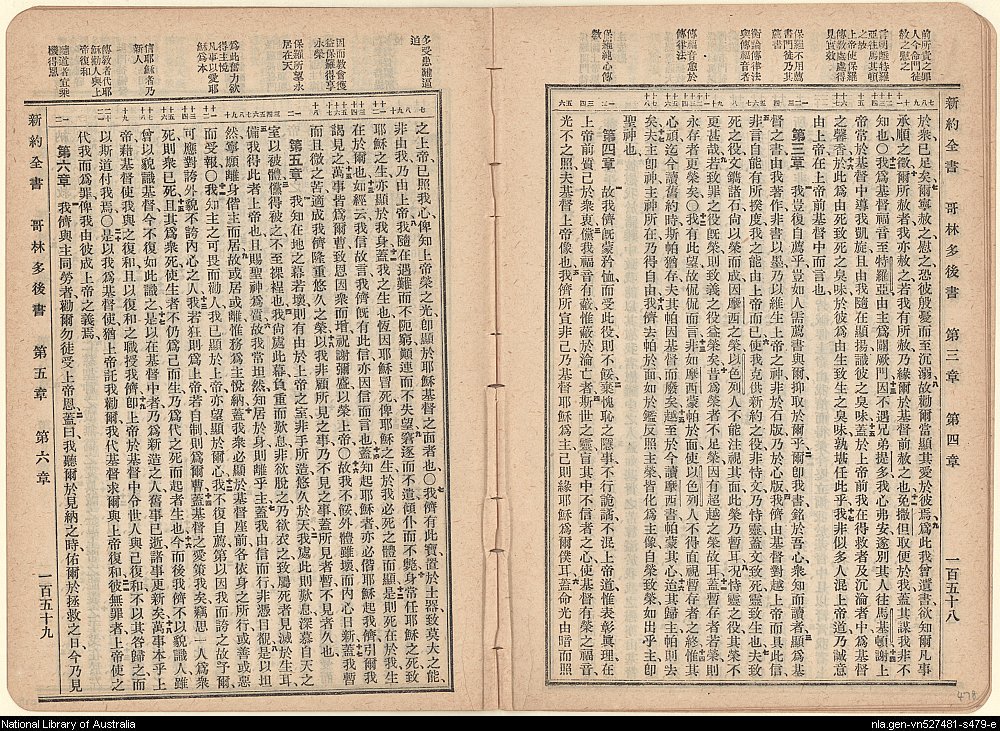 新約全書 哥林多後書 第三章 第四章 一百五十八
於衆已足矣爾寧赦之慰之恐彼殷憂而至沉溺故勸爾當顯其愛於彼焉爲此我曾遺書欲知爾凡事
承順之徵爾所赦者我亦赦之若我有所赦乃緣爾於基督前赦之也免撒但取便於我蓋其謀我非不
知也〇我爲基督福音至特羅亞由主爲我闢厥門因不遇兄弟提多我心弗安遂別其人往馬基頓謝
上帝常於基督中導我凱旋且由我隨在顯揚識彼之臭味蓋於上帝前我在得救者及沉淪者中爲基督
之馨香於此爲由死致死之臭味於彼爲由生致生之臭味孰堪任此乎我非似多人混上帝道乃誠意
由上帝在上帝前基督中而言也
第三章 我豈復自薦乎豈如人需薦書與爾抑取於爾乎爾即我書銘於吾心衆知而讀者顯爲基
督之書由我儕著作非書以墨乃以維生上帝之神非於石版乃於心版我儕由基督對越上帝而具此信
非言自能有所揆度我之能由上帝而已使我克供新約之役非恃文乃恃靈蓋文致死靈致生也夫致
死之役文鐫諸石尚以榮而成因摩西之榮以色列人不能注視其面此榮乃暫耳况恃靈之役其榮不
更甚哉若致罪之役旣榮則致義之役益榮矣昔爲榮者不足榮因有超越之榮故耳蓋暫者若榮則
永存者更榮矣〇我有此望故侃侃而言非如摩西蒙帕於面使以色列人不得面視暫存者之終惟其
心頑迄今讀舊約時斯帕猶存夫其帕因基督而廢矣越至於今讀摩西書帕蒙其心迨其歸主帕則去
矣夫主卽神主神所在乃得自由我儕去帕於面如於鑑反照主榮皆化爲主像自榮致榮如出乎主卽
聖神也
第四章 故我儕旣蒙矜恤而受此役則不餒棄愧恥之隱事不行詭譎不混上帝道惟表彰眞理在
上帝前質已於衆衷儻我福音有蔽惟蔽於淪亡者斯世之靈盲其中不信者之心使基督有榮之福音
光不之照夫基督上帝像也我儕所宣非己乃基督耶穌爲主己則緣耶穌爲爾僕耳蓋命光由暗而照
新約全書 哥林多後書 第五章 第六章 一百五十九
之上帝已照我心俾知上帝榮之光卽顯於耶穌基督之面者也〇我儕有此寶置於土器致莫大之能
非由我乃由上帝我隨在遇難而不阨窮顚連而不失望窘逐而不遺傾仆而不斃身常任耶穌之死致
耶穌之生亦顯於我身蓋我之生也恆因耶穌冒死俾耶穌之生於我必死之體而顯是則死在於我生
在於爾也如經云我信故言我儕旣有此信亦因信而言也蓋知起耶穌者亦必偕耶穌起我儕引爾我
謁見之萬事皆爲爾曹致恩因衆而增祝謝彌盛以榮上帝〇故我不餒外體雖壞而內心日新蓋我暫
而且微之苦適成我儕隆重悠久之榮以我非顧所見之事乃不見之事蓋所見者暫不見者久也
第五章 我知在地之幕若壞則有由於上帝之室非手所造悠久於天我處此則歎息深慕自天之
室以被體儻得被之不至裸裎也我尚處此幕負重而歎息非欲脫之乃欲衣之致屬死者見滅於生耳
備我得此者上帝也且賜聖神爲質故我常坦然知居於身則離乎主蓋我由信而行非憑目覩是以坦
然寧願離身偕主而居故或居或離惟務爲主悅納蓋我衆必顯於基督座前各依身之所行或善或惡
而受報〇我知主之可畏而勸人我已顯於上帝亦望顯於爾心我不復自薦第以因我而誇之故予爾
可應對誇外貌不誇內心之人我若狂則爲上帝若自制則爲爾曹蓋基督之愛策我矣竊思一人爲衆
死則衆已死且其爲衆死使生者不仍爲己而生乃爲代之死而起者生也今而後我儕不以貌識人雖
曾以貌識基督今不復如此識之是以在基督中者乃爲新造之人舊事已逝諸事更新矣萬事本乎上
帝藉基督使我與之復和且以復和之職授我儕卽上帝於基督中令世人與己復和不以其咎歸之而
以斯道付我焉〇是以我爲基督使猶上帝託我勸爾我代基督求爾與上帝復和彼無罪者上帝使之
代我而爲罪俾我由彼成上帝之義焉
第六章 我儕與主同勞者勸爾勿徒受上帝恩蓋曰我聽爾於見納之時佑爾於拯救之日今乃見
National Library of Australia
nla.gen-vn527481-s479-e